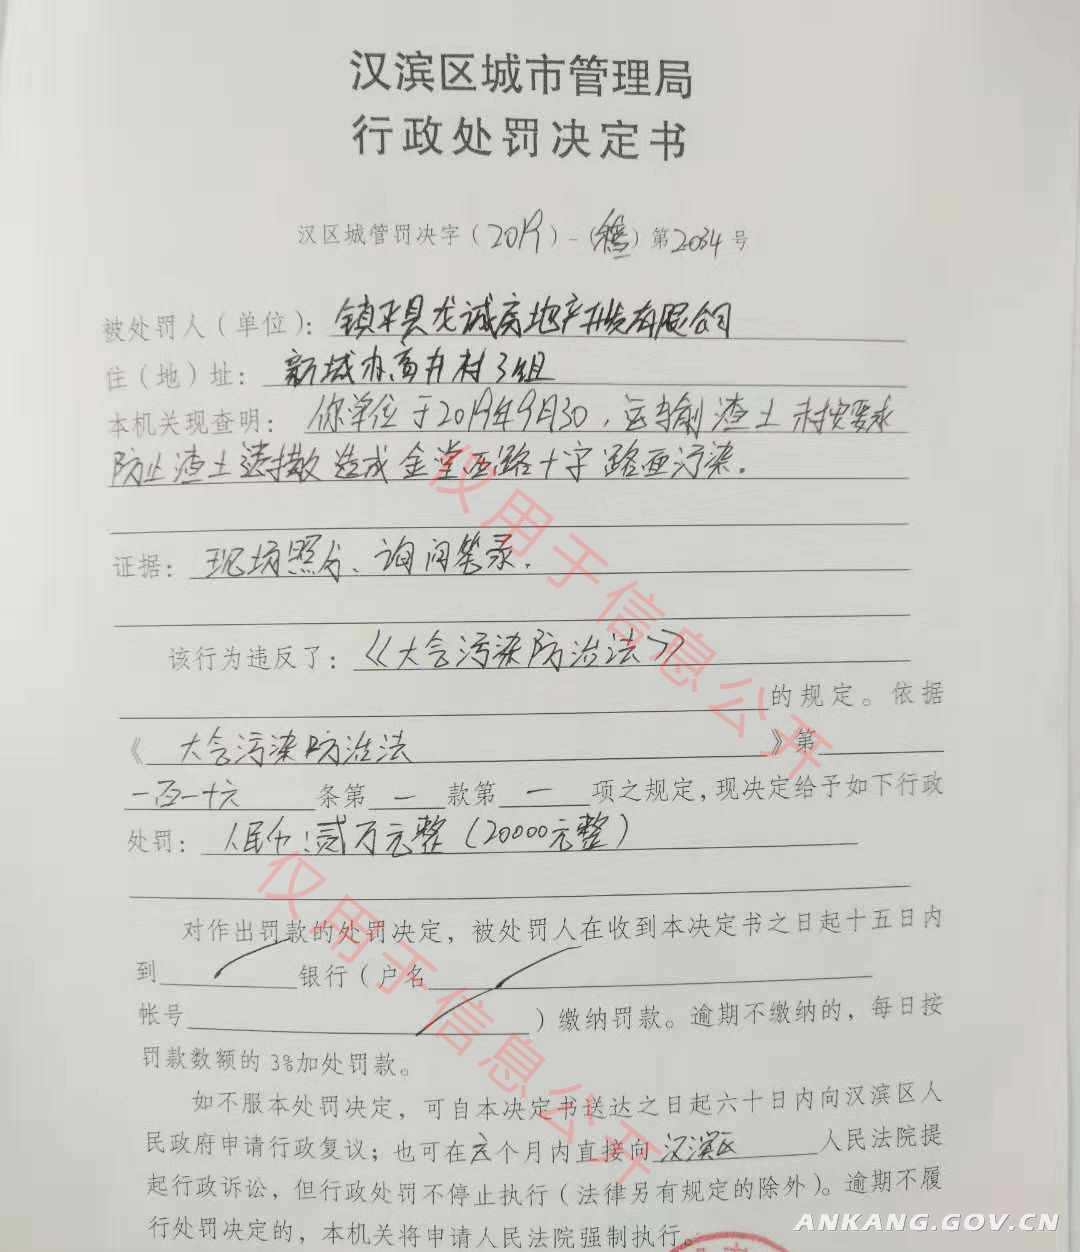 汉滨区城市管理局
行政处罚决定书
汉区城管罚决字（2019）-（稽）第2034号
被处罚人（单位）：镇平县龙诚房地产开发有限公司
住（地）址：新城办高井村3组
本机关现查明：你单位于2019年9月30，运输渣土未按要求
防止渣土遗撒造成金堂西路十字路面污染.
证据：现场照片、询问笔录.
该行为违反了：《大气污染防治法》
的规定。依据
《大气污染防治法》第
一百一十六条第一款第一项之规定，现决定给予如下行政
处罚：人民币：贰万元整（20000元整）
对作出罚款的处罚决定，被处罚人在收到本决定书之日起十五日内
到 银行（户名
帐号 ）缴纳罚款。逾期不缴纳的，每日按
罚款数额的3%加处罚款。
如不服本处罚决定，可自本决定书送达之日起六十日内向汉滨区人
民政府申请行政复议；也可在六个月内直接向汉滨区人民法院提
起行政诉讼，但行政处罚不停止执行（法律另有规定的除外）。逾期不履
行处罚决定的，本机关将申请人民法院强制执行。
仅用于信息公开
仅用于信息公开
ANKANG.GOV.CN